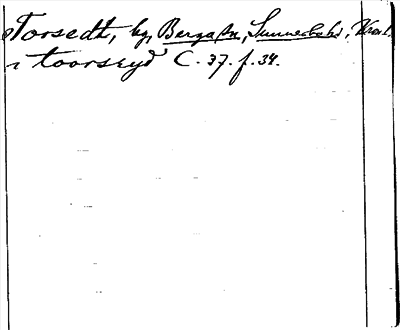 Torsedt, by, Berga sn, Sunnerbo hd, Kron.l.
i toorsryd C. 37. f. 34.